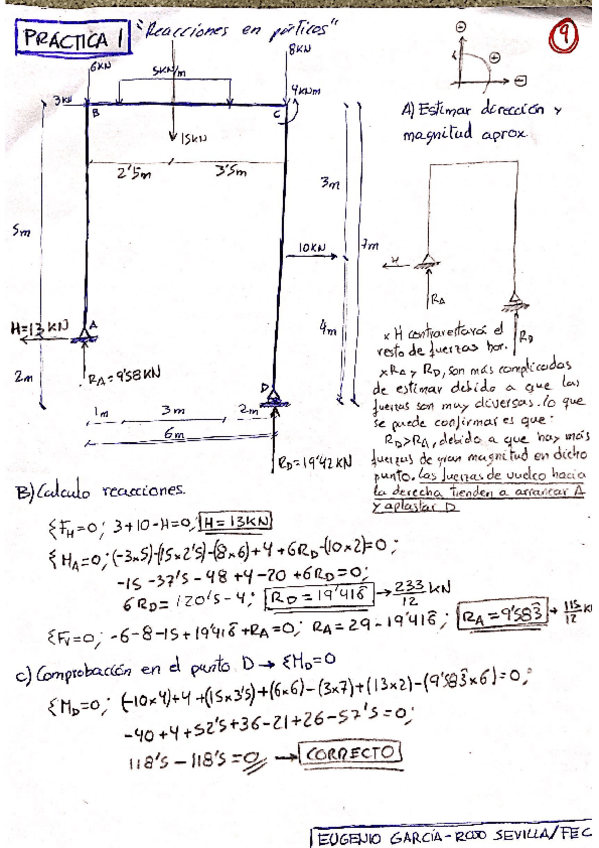 PRÁCTICA 1 "Reacciones en pórticos"
9
6KN
5KN/m
8KN
3KN
4KNm
B
C
15KN
A) Estimar dirección y
magnitud aprox
2'5m
3'5m
3m
5m
10KN
7m
H
RA
4m
H=13 KN
A
RD
x H contrarestará el
resto de fuerzas hor.
2m
RA=9'58KN
D
x RA y RD, son más complicadas
de estimar debido a que las
fuerzas son muy diversas. lo que
se puede confirmar es que:
RD>RA, debido a que hay más
fuerzas de gran magnitud en dicho
punto. Las fuerzas de vuelco hacia
la derecha tienden a arrancar A
y aplastar D
1m
3m
2m
6m
RD=19'42KN
B) Calculo reacciones.
ΣFH=0; 3+10-H=0; H=13KN
ΣMA=0; (-3x5)-(15x2'5)-(8x6)+4+6RD-(10x2)=0;
-15-37'5-48+4-20+6RD=0;
6RD=120'5-4; RD=19'416 → 233/12 KN
ΣFV=0; -6-8-15+19'416+RA=0; RA=29-19'416; RA=9'583 → 115/12 K
C) Comprobación en el punto D → ΣMD=0
ΣMD=0; (-10x4)+4+(15x3'5)+(6x6)-(3x7)+(13x2)-(9'583x6)=0;
-40+4+52'5+36-21+26-57'5=0;
118'5-118'5=0 → CORRECTO
EUGENIO GARCÍA-ROJO SEVILLA/FEC